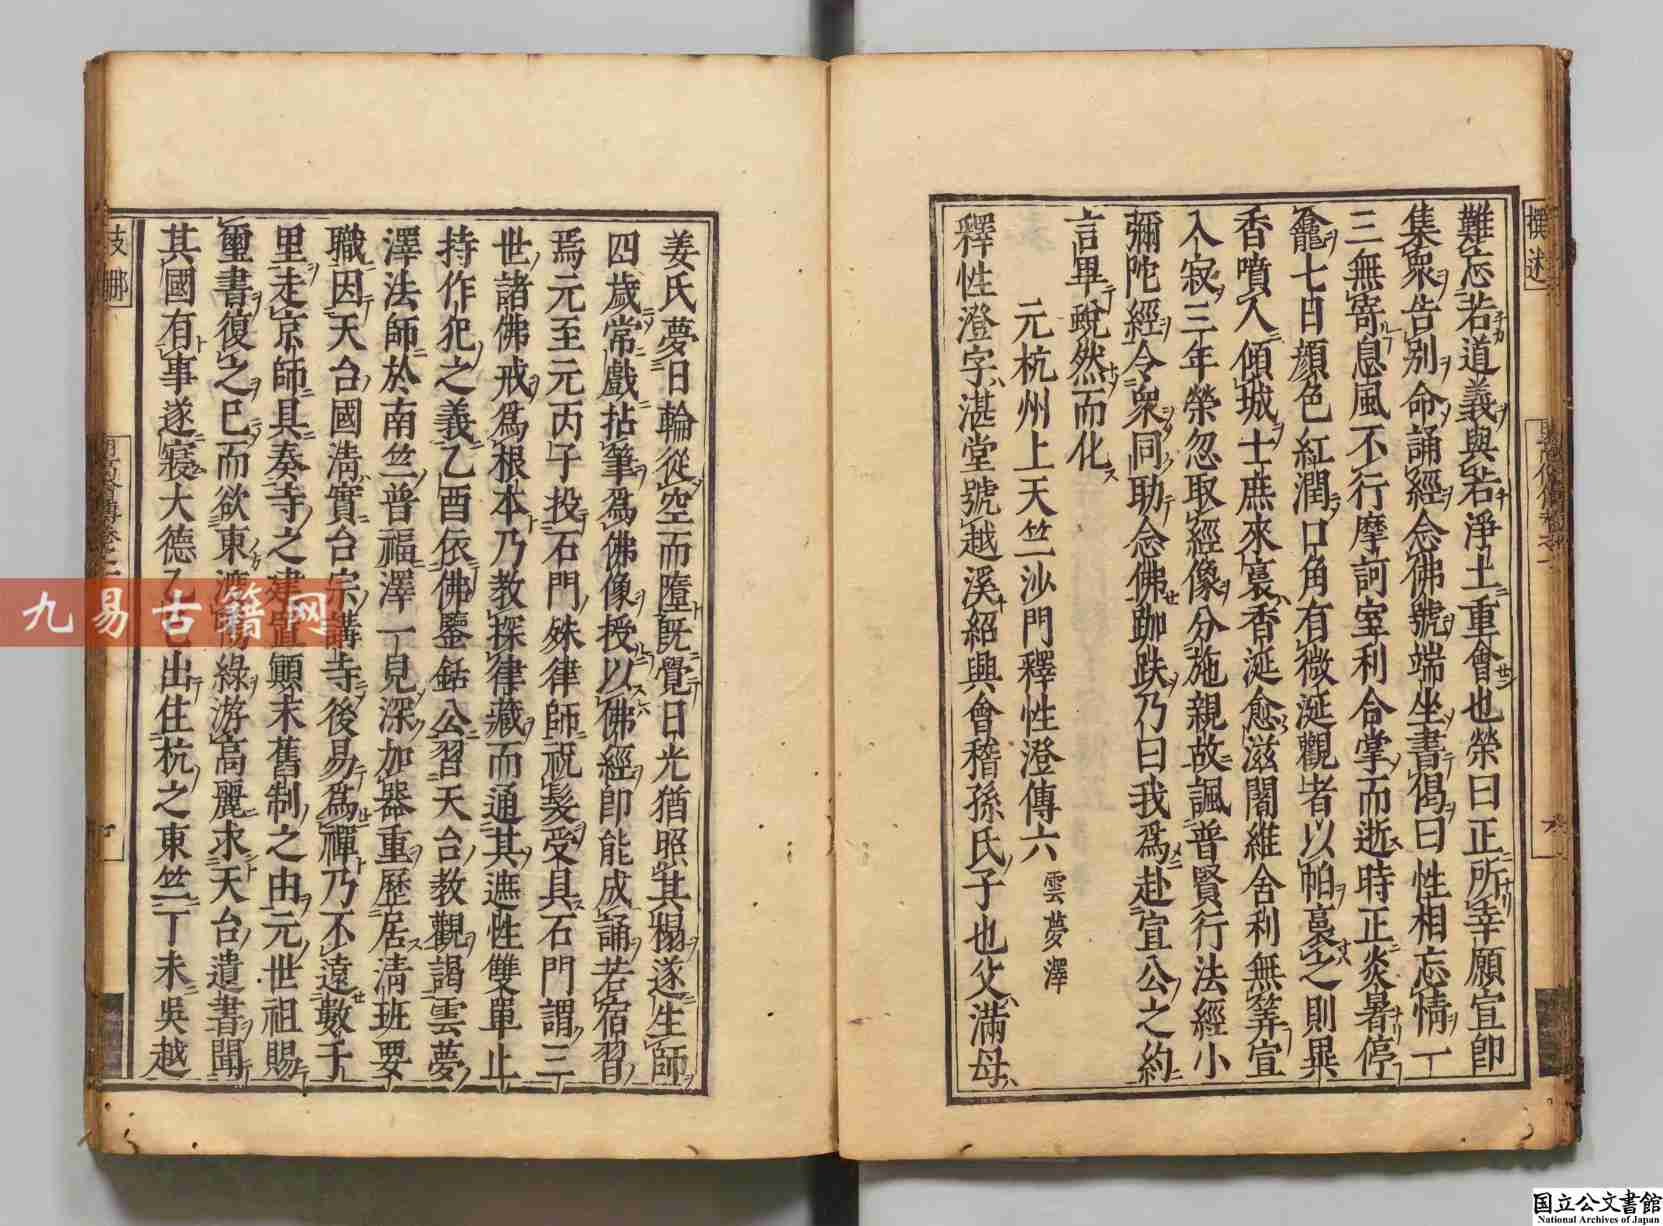 難忘若道義與若淨土重會也榮曰正所幸願宣卽
集衆告別命誦經念佛號端坐書偈曰性相忘情一
三無寄息風不行摩訶室利合掌而逝時正炎暑停
龕七日顏色紅潤口角有微涎觀者以帕裹之則異
香噴人傾城士庶來裹香涎愈滋闍維舍利無筭宣
入寂三年榮忽取經像分施親故諷普賢行法經小
彌陀經令衆同助念佛跏趺乃曰我爲赴宣公之約
言畢蛻然而化
元杭州上天竺沙門釋性澄傳六 雲夢澤
釋性澄字湛堂號越溪紹興會稽孫氏子也父滿母
姜氏夢日輪從空而墮旣覺日光猶照其榻遂生師
四歲常戲拈筆爲佛像授以佛經卽能成誦若宿習
焉元至元丙子投石門殊律師祝髮受具石門謂三
世諸佛戒爲根本乃教探律藏而通其遮性雙單止
持作犯之義乙酉依佛鑒銛公習天台教觀謁雲夢
澤法師於南竺普福澤一見深加器重歷居淸班要
職因天台國淸實台宗講寺後易爲禪乃不遠數千
里走京師具奏寺之建置顚末舊制之由元世祖賜
璽書復之已而欲東渡游高麗求天台遺書聞
其國有事遂寢大德出住杭之東竺丁未吳越
撰述
支那
九易古籍网
国立公文書館
National Archives of Japan